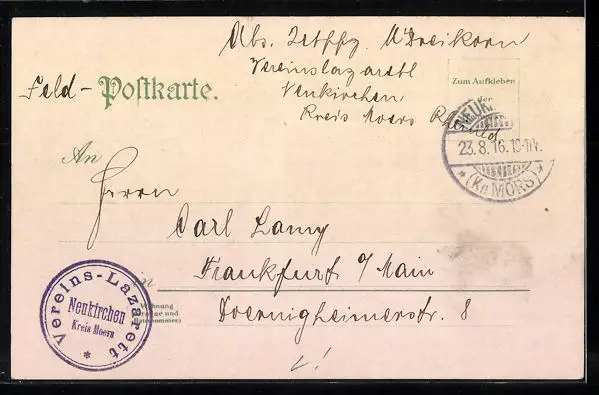 Abs. W Dreikorn
Vereinslazarett
Neukirchen
Kreis Moers Rheinld.
Feld - Postkarte.
Zum Aufkleben
der
NEUK
23.8.16.10-11V.
* (Kr. MÖRS) *
An
Herrn
Carl Lamy
in Frankfurt a/Main
Wohnung
(Strasse und
Hausnummer)
Doernigheimerstr. 8
Vereins-Lazarett
Neukirchen
Kreis Moers
*